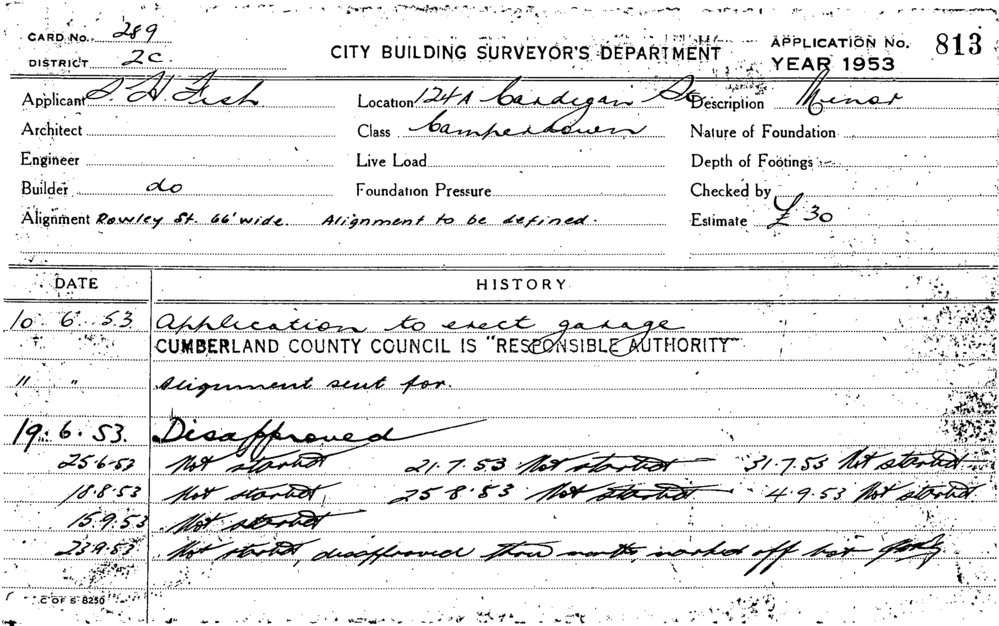 CARD No. 289
DISTRICT 2C.
CITY BUILDING SURVEYOR'S DEPARTMENT
APPLICATION No. 813
YEAR 1953
Applicant S. H Fish
Location 124A Cardigan St
Description Minor
Architect
Class Camperdown
Nature of Foundation
Engineer
Live Load
Depth of Footings
Builder do
Foundation Pressure
Checked by
Alignment Rowley St. 66' wide. Alignment to be defined.
Estimate £30
DATE HISTORY
10.6.53 Application to erect garage
CUMBERLAND COUNTY COUNCIL IS "RESPONSIBLE AUTHORITY"
" " Alignment sent for.
19.6.53. Disapproved
25.6.53 Not started 21.7.53 Not started 31.7.53 Not started
18.8.53 Not started 25.8.53 Not started 4.9.53 Not started
15.9.53 Not started
23.9.53 Not started, disapproved three months, marked off list
C OF S 8250